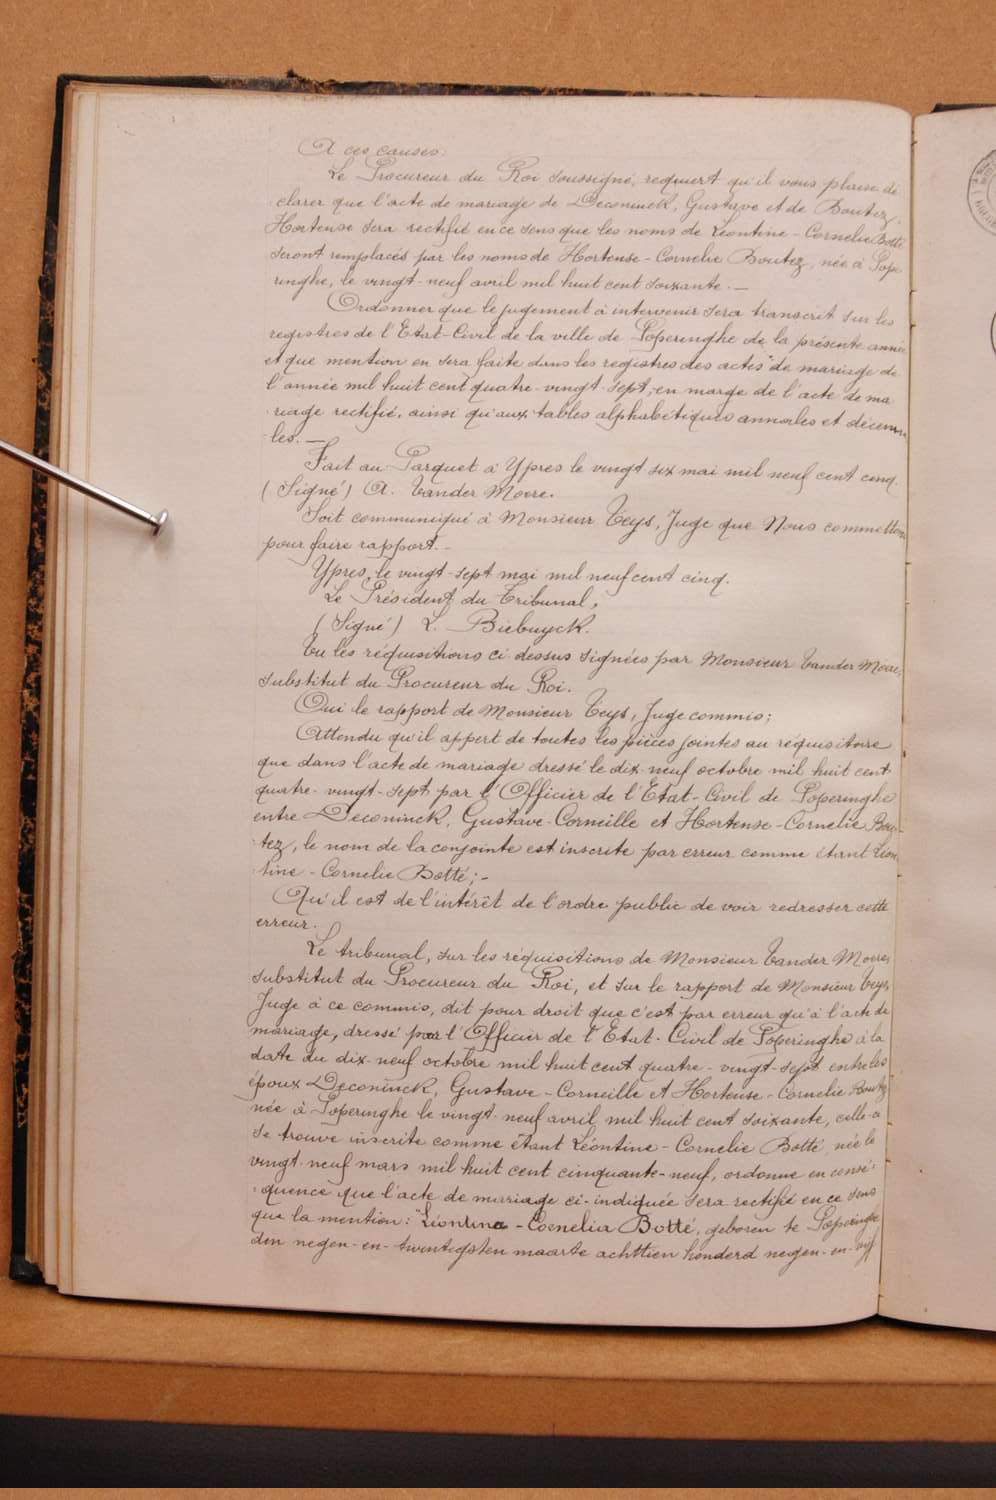 A ces causes:
Le Procureur du Roi soussigné, requiert qu'il vous plaise dé
clarer que l'acte de mariage de Deconinck, Gustave et de Boutez,
Hortense sera rectifié en ce sens que les noms de Léontine - Cornelie Botté
seront remplacés par les noms de Hortense - Cornelie Boutez, née à Pope
ringhe, le vingt-neuf avril mil huit cent soixante. —
Ordonner que le jugement à intervenir sera transcrit sur les
registres de l'Etat-Civil de la ville de Poperinghe de la présente année
et que mention en sera faite dans les registres des actes de mariage de
l'année mil huit cent quatre-vingt-sept, en marge de l'acte de ma
riage rectifié, ainsi qu'aux tables alphabétiques annales et décenna
les. —
Fait au Parquet à Ypres le vingt six mai mil neuf cent cinq.
(Signé) A. Vander Moere.
Soit communiqué à Monsieur Teys, Juge que Nous commettons
pour faire rapport. -
Ypres, le vingt-sept mai mil neuf cent cinq.
Le Président du Tribunal,
(Signé) L. Biebuyck.
Vu les réquisitions ci-dessus signées par Monsieur Vander Moere,
substitut du Procureur du Roi.
Oui le rapport de Monsieur Teys, Juge commis;
Attendu qu'il appert de toutes les pièces jointes au réquisitoire
que dans l'acte de mariage dressé le dix-neuf octobre mil huit cent
quatre-vingt-sept par l'Officier de l'Etat-Civil de Poperinghe
entre Deconinck, Gustave-Corneille et Hortense-Cornelie Bou-
tez, le nom de la conjointe est inscrite par erreur comme étant Léon
tine - Cornelie Botté; -
Qu'il est de l'intérêt de l'ordre public de voir redresser cette
erreur.
Le tribunal, sur les réquisitions de Monsieur Vander Moere,
substitut du Procureur du Roi, et sur le rapport de Monsieur Teys,
Juge à ce commis, dit pour droit que c'est par erreur qu'à l'acte de
mariage, dressé par l'Officier de l'Etat-Civil de Poperinghe à la
date du dix-neuf octobre mil huit cent quatre-vingt-sept entre les
époux Deconinck, Gustave-Corneille et Hortense-Cornelie Boutez
née à Poperinghe le vingt-neuf avril mil huit cent soixante, celle-ci
se trouve inscrite comme étant Léontine-Cornelie Botté, née le
vingt-neuf mars mil huit cent cinquante-neuf, ordonne en consé-
quence que l'acte de mariage ci-indiquée sera rectifié en ce sens
que la mention: "Léontina - Coenelia Botté, geboren te Poperinghe
den negen-en-twentigsten maarte achttien honderd negen-en-vijf